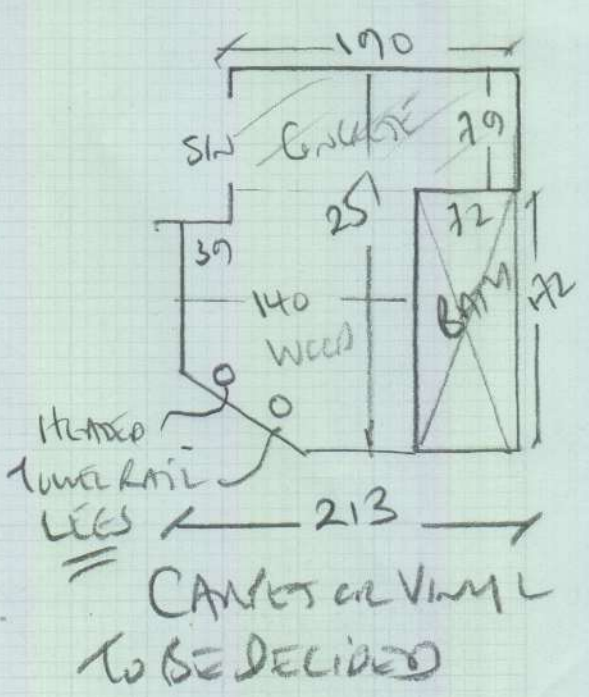 190
SIN CONCRETE 79
251
72
39
172
140
BATH
WOOD
HEATED
TOWEL RAIL
LEGS
213
CARPET OR VINYL
TO BE DECIDED